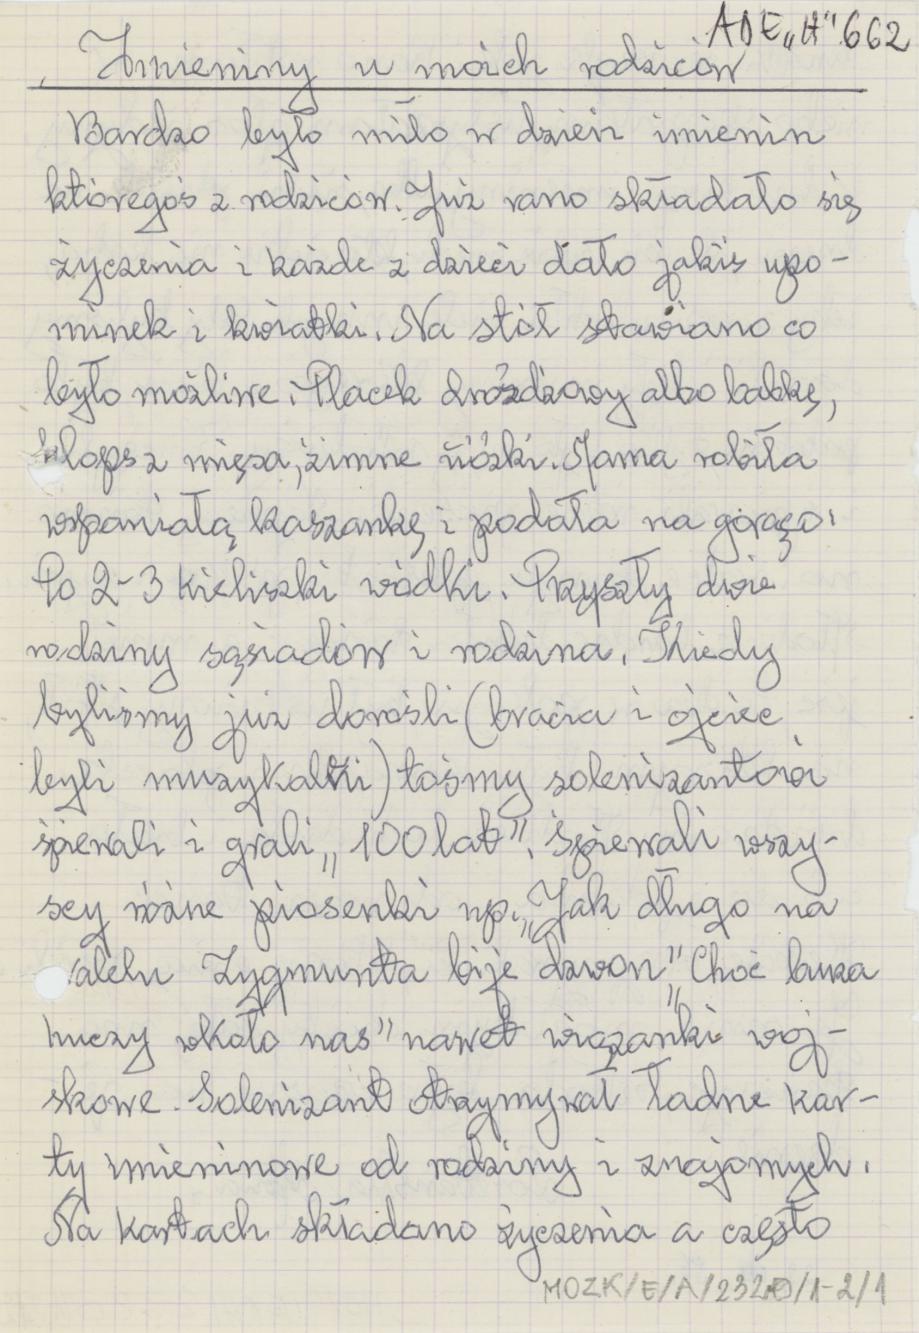 ADE „H" 662
Imieniny u moich rodziców
Bardzo było miło w dzień imienin
któregoś z rodziców. Już rano składało się
życzenia i każde z dzieci dało jakiś upo-
minek i kwiatki. Na stół stawiano co
było możliwe. Placek drożdżowy albo babkę,
klops z mięsa, zimne nóżki. Mama robiła
wspaniałą kaszankę i podała na gorąco.
Po 2-3 kieliszki wódki. Przyszły dwie
rodziny sąsiadów i rodzina. Kiedy
byliśmy już dorośli (bracia i ojciec
byli muzykalni) tośmy solenizantowi
śpiewali i grali „100 lat". Śpiewali wszy-
scy różne piosenki np. „Jak długo na
walelu Zygmunta bije dzwon" „Choć burza
huczy wkoło nas" nawet wiązanki woj-
skowe. Solenizant otrzymywał ładne kar-
ty imieninowe od rodziny i znajomych.
Na kartach składano życzenia a często
MOZK/E/A/232/1-2/1